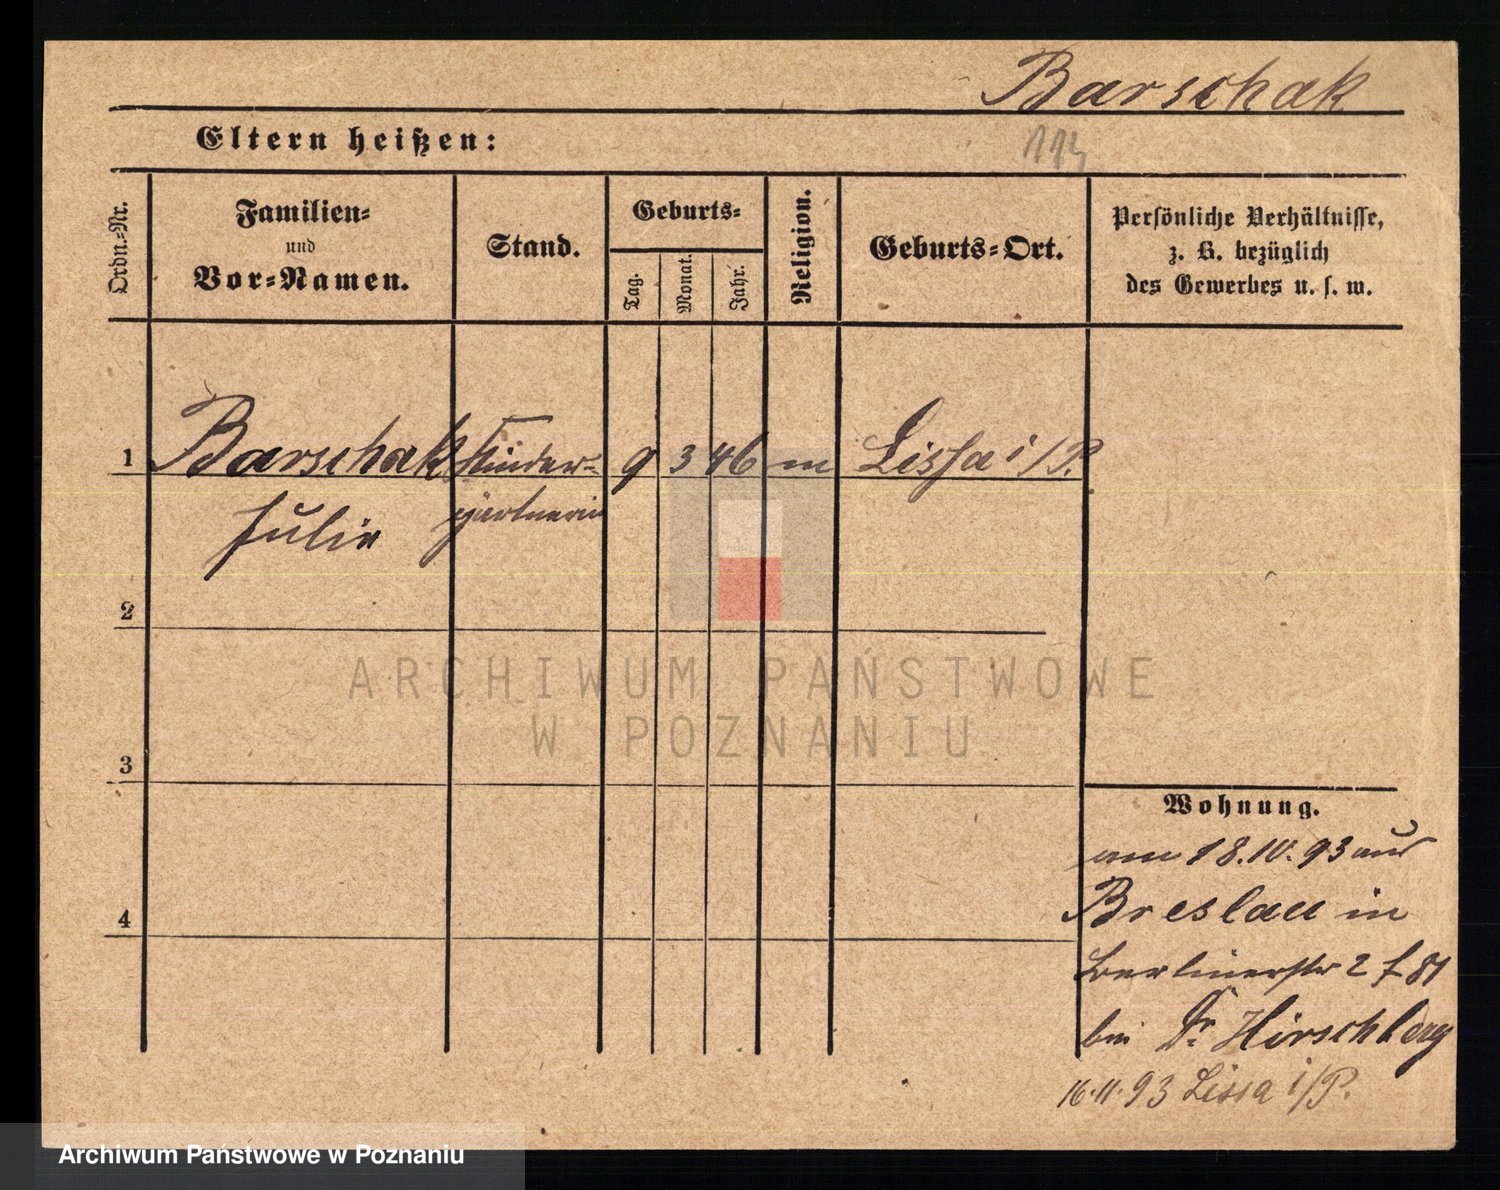 Barschak
Eltern heißen:
114
Ordn.-Nr.
Familien-
und
Vor-Namen.
Stand.
Geburts-
Tag.
Monat.
Jahr.
Religion.
Geburts-Ort.
Persönliche Verhältnisse,
z. B. bezüglich
des Gewerbes u. s. w.
1 Barschak Kinder- 9 3 46 m Lissa i/P.
Julie gärtnerin
2
3
4
Wohnung.
am 18.10.93 aus
Breslau in
Berlinerstr 2
bei Dr. Hirschberg
16.11.93 Lissa i/P.
ARCHIWUM PAŃSTWOWE
W POZNANIU
Archiwum Państwowe w Poznaniu